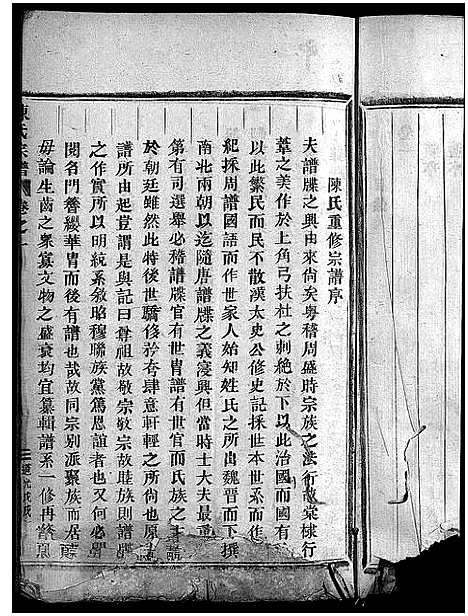 陳氏重修宗譜序
夫譜牒之興由來尚矣粵稽周盛時宗族之法行棠棣行
葦之美作於上角弓扶杜之刺絶於下以此治國而國有
以此繫民而民不散漢太史公修史記採世本世系而作
紀採周譜國語而作世家人始知姓氏之所出魏晋而下撰
南北兩朝以迄隨唐譜牒之義寖興但當時士大夫最重
第有司選舉必稽譜牒官有世冑譜有世官而氏族之
於朝廷雖然此特後世驕侈矜夸肆意軒輊之所尚也原
譜所由起豈謂是與記曰尊祖故敬宗敬宗故睦族則譜
之作實所以明統系敘昭穆聯族黨篤恩誼者也又何必
閥名門簪纓華冑而後有譜也哉故同宗別派聚族而居
毋論生齒之衆寡文物之盛衰均宜纂輯譜系一修再
陳氏宗譜 卷之一